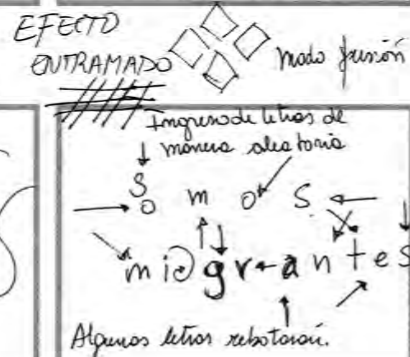 EFECTO
ENTRAMADO
modo fusión
Ingreso de letras de
manera aleatoria
S
o m o s
migrantes
Algunas letras rebotarán.